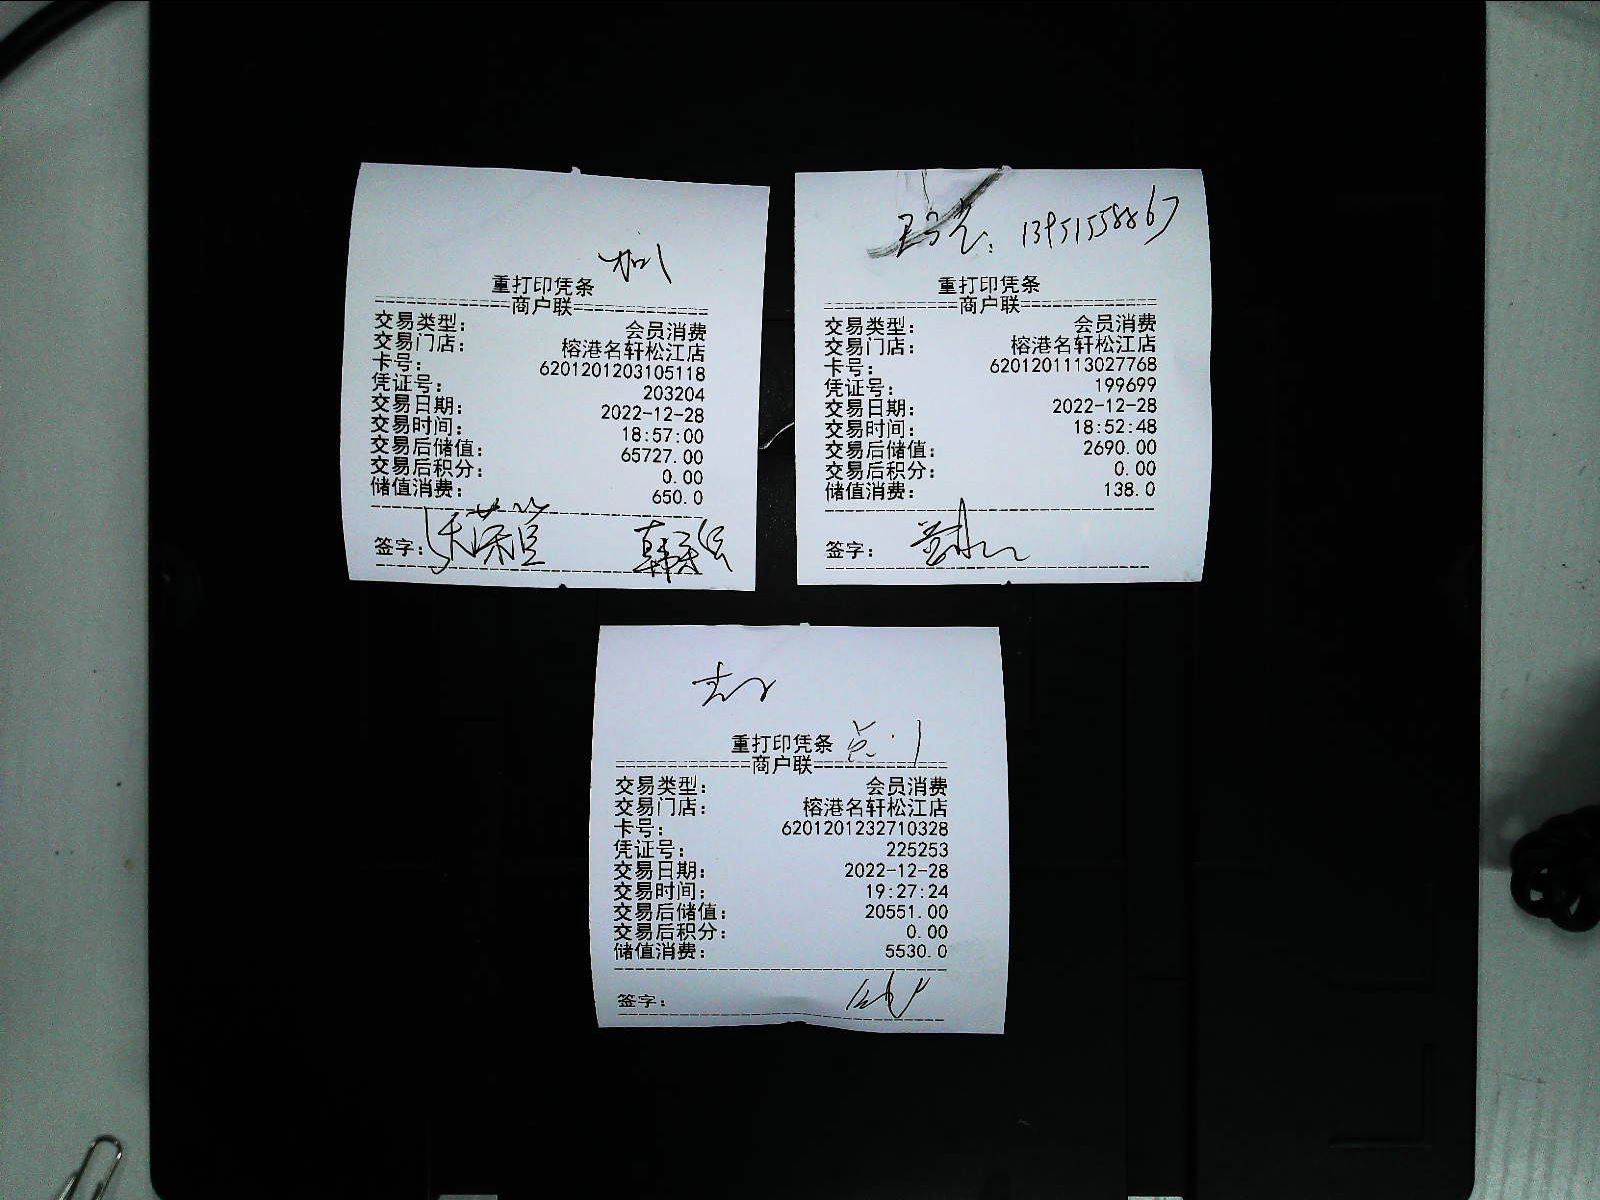 重打印凭条
==============商户联==============
交易类型: 会员消费
交易门店: 榕港名轩松江店
卡号: 6201201203105118
凭证号: 203204
交易日期: 2022-12-28
交易时间: 18:57:00
交易后储值: 65727.00
交易后积分: 0.00
储值消费: 650.0
签字:
13951558867
重打印凭条
==============商户联==============
交易类型: 会员消费
交易门店: 榕港名轩松江店
卡号: 6201201113027768
凭证号: 199699
交易日期: 2022-12-28
交易时间: 18:52:48
交易后储值: 2690.00
交易后积分: 0.00
储值消费: 138.0
签字:
重打印凭条
==============商户联==============
交易类型: 会员消费
交易门店: 榕港名轩松江店
卡号: 6201201232710328
凭证号: 225253
交易日期: 2022-12-28
交易时间: 19:27:24
交易后储值: 20551.00
交易后积分: 0.00
储值消费: 5530.0
签字: